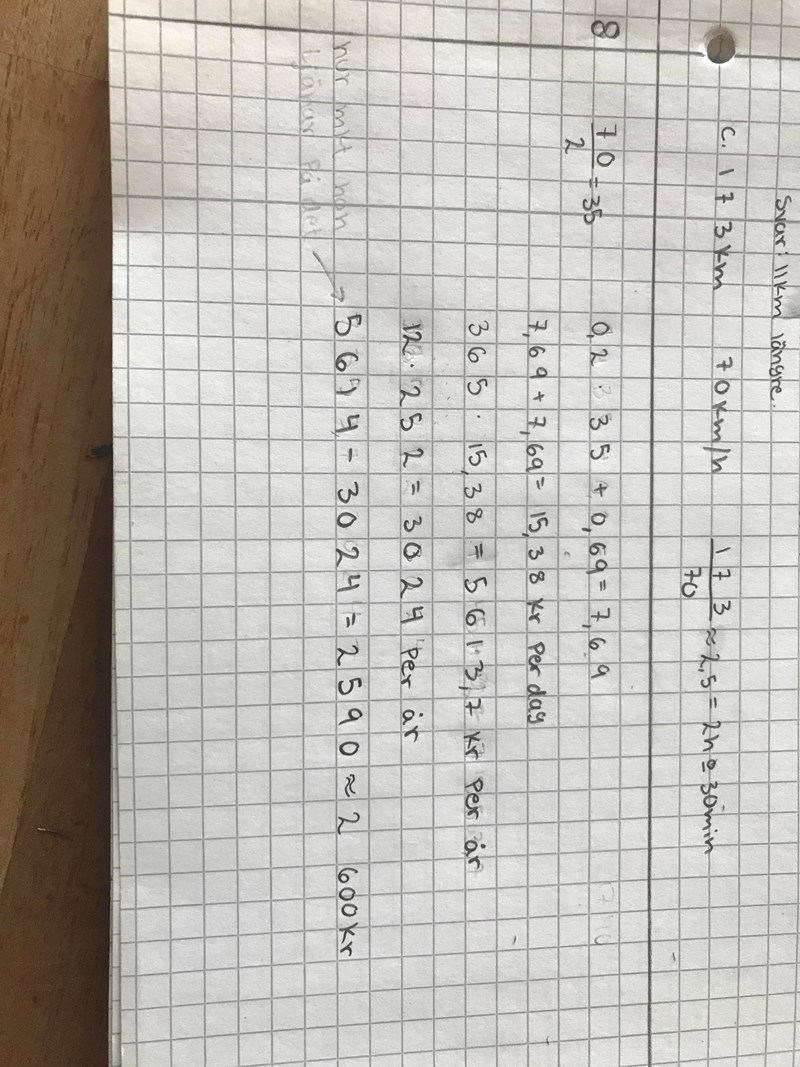 Svar: 11km längre.
c. 173km 70km/h 173/70 ≈ 2,5 = 2h o 30min
8 70/2 = 35 0,2 · 35 + 0,69 = 7,69
7,69 + 7,69 = 15,38 kr per dag
365 · 15,38 = 5613,7 kr per år
12 · 252 = 3024 per år
hur mkt hon tjänar på det → 5614 - 3024 = 2590 ≈ 2 600kr